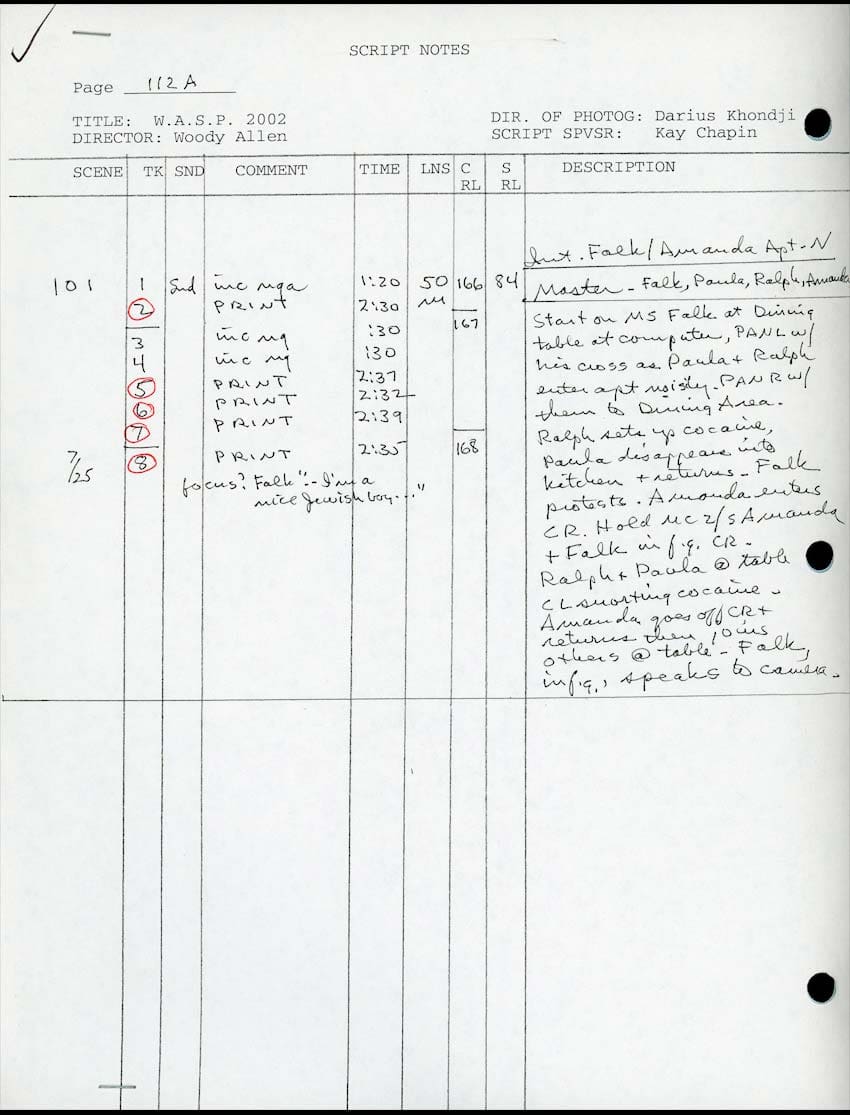 SCRIPT NOTES
Page 112A
TITLE: W.A.S.P. 2002
DIRECTOR: Woody Allen
DIR. OF PHOTOG: Darius Khondji
SCRIPT SPVSR: Kay Chapin
SCENE TK SND COMMENT TIME LNS C RL S RL DESCRIPTION
Int. Falk/Amanda Apt-N
101 1 Snd inc nga 1:20 50 166 84 Master - Falk, Paula, Ralph, Amanda
2 PRINT 2:30 M
3 inc ng :30 167
4 inc ng :30
5 PRINT 2:37
6 PRINT 2:32
7 PRINT 2:39
7/25 8 PRINT 2:35 168
focus? Falk ":- I'm a
nice Jewish boy..."
Start on MS Falk at Dining
table at computer, PAN L w/
his cross as Paula + Ralph
enter apt noisily. PAN R w/
them to Dining Area.
Ralph sets up cocaine,
Paula disappears into
kitchen + returns - Falk
protests. Amanda enters
CR. Hold MC 2/s Amanda
+ Falk in f.g. CR -
Ralph + Paula @ table
CL snorting cocaine -
Amanda goes off CR +
returns then joins
others @ table - Falk,
in f.g., speaks to camera.